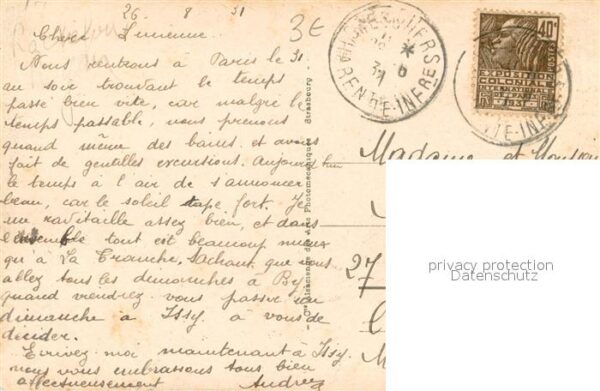 26 8 31
3€
Chère
Nous rentrons à Paris le 31
au soir trouvant le temps
passé bien vite, car malgré le
temps passable, nous prenons
quand même des bains et avons
fait de gentilles excursions. Aujourd'hui
le temps à l'air de s'annoncer
beau, car le soleil tape fort. Je
me ravitaille assez bien, et dans
l'ensemble tout est beaucoup mieux
qu'à La Tranche. Sachant que vous
allez tous les dimanches à
quand viendrez vous passer un
dimanche à Issy à vous de
décider.
Ecrivez moi maintenant à Issy.
nous vous embrassons tous bien
affectueusement Andrée
des Arts Photomécaniques Strasbourg
CHARENTE-INFRE
40c
POSTES
EXPOSITION
COLONIALE
INTERNATIONALE
PARIS 1931
TE-INFRE
Madame et Monsieur
27
privacy protection
Datenschutz